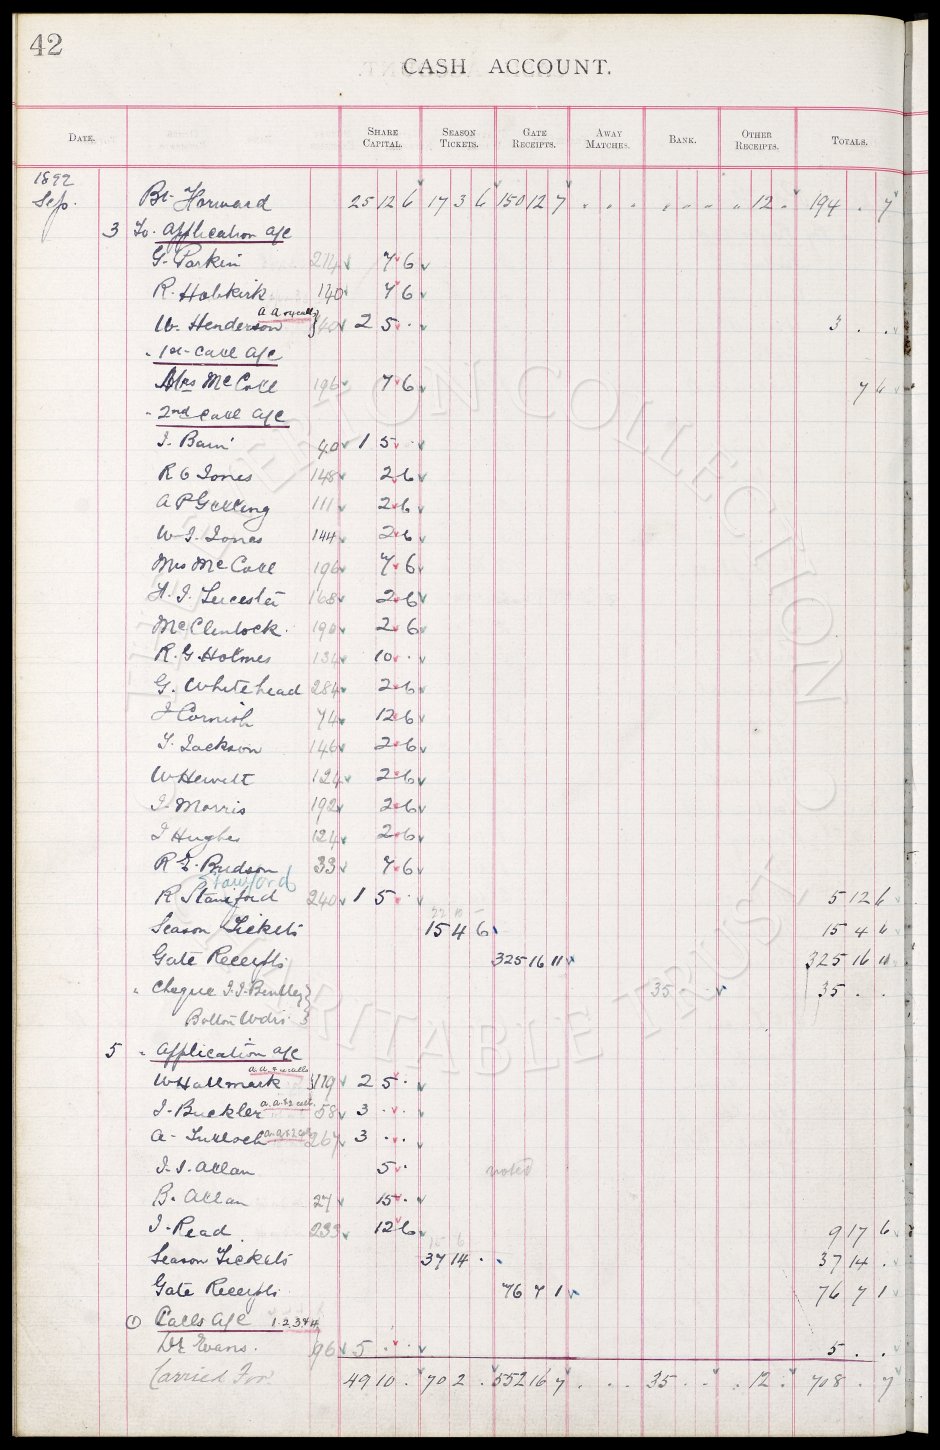 42
CASH ACCOUNT.
DATE. SHARE CAPITAL. SEASON TICKETS. GATE RECEIPTS. AWAY MATCHES. BANK. OTHER RECEIPTS. TOTALS.
1892
Sep. Bt. Forward 25 12 6 17 3 6 150 12 7 . . . . . . . . 12 . 194 . 7
3 To. Application a/c
G. Parkin 214 7 6
R. Hobkirk 140 7 6
W. Henderson 140 2 5 . 3 . .
. 1st Call a/c
Mrs McCall 196 7 6 7 6
. 2nd Call a/c
J. Bain 40 1 5 .
R O Jones 148 2 6
A P Gelling 111 2 6
W. J. Jones 144 2 6
Mrs McCall 196 7 6
H. J. Leicester 168 2 6
McClintock. 190 2 6
R. G. Holmes 134 10 .
G. Whitehead 284 2 6
J Cornish 74 12 6
T. Jackson 146 2 6
W Hewitt 124 2 6
J. Morris 192 2 6
J Hughes 124 2 6
R E. Budson 33 7 6
Staniford
R Staniford 240 1 5 . 5 12 6
Season Tickets 15 4 6 15 4 6
Gate Receipts 325 16 11 325 16 11
" Cheque J. J. Bentley 35 . . 35 . .
Bolton Wdrs.
5 " Application a/c
W Hallmark 119 2 5 .
J. Buckler 58 3 . .
A. Tulloch 267 3 . .
J. J. Allan 5 . noted
B. Allan 27 15 .
J. Read 233 12 6 9 17 6
Season Tickets 37 14 . 37 14 .
Gate Receipts 76 7 1 76 7 1
Calls a/c 1. 2. 3 & 4
Dr Evans. 96 5 . . 5 . .
Carried For 49 10 . 70 2 . 552 16 7 . . . 35 . . . 12 . 708 . 7
EVERTON COLLECTION
CHARITABLE TRUST